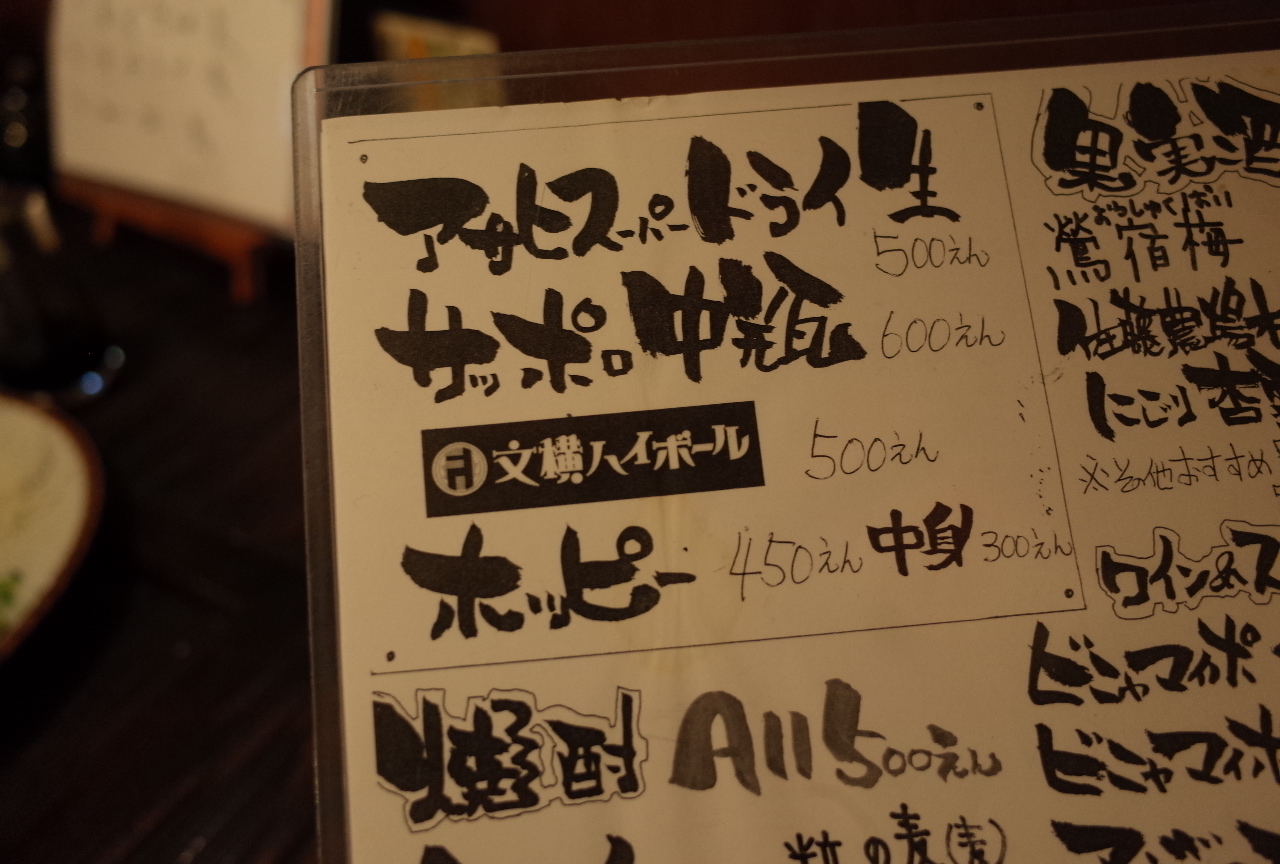 アサヒスーパードライ生
500えん
サッポロ中瓶 600えん
文横ハイボール 500えん
ホッピー 450えん 中身 300えん
焼酎 All 500えん
の麦(麦)
果実酒
おうしゅくばい
鶯宿梅
佐藤農場
にごり杏
※その他おすすめ
ワイン&ス
ビニャマイポ
ビニャマイポ